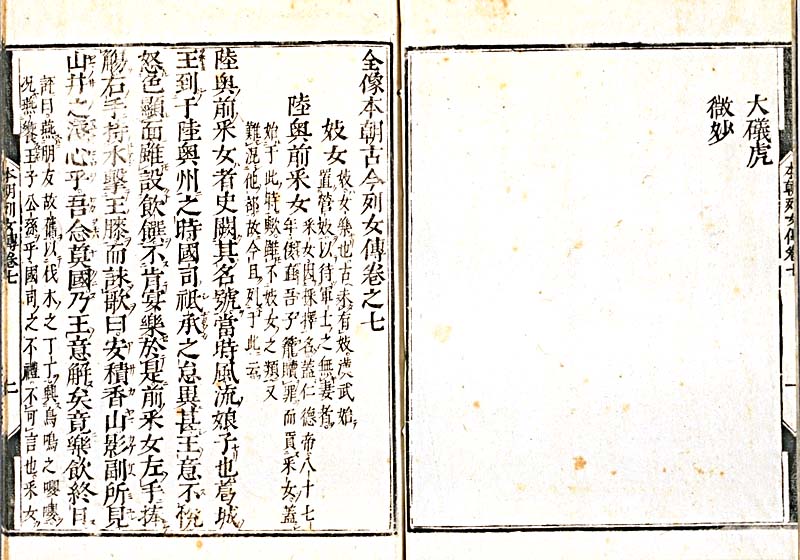 大礒虎
微妙
本朝列女傳卷七
一
全像本朝古今列女傳卷之七
妓女
妓女樂也古未有妓漢武始
置管妓以待軍士之無妻者
陸奥前釆女
釆女因採擇名蓋仁德帝八十七
年倭直吾子籠贖罪而貢釆女蓋
始于此時歟雖不妓女之類又
難混他部故今且列于此云
陸奥前釆女者史闕其名號當時風流娘子也葛城
王到于陸奥州之時國司祇承之怠異甚王意不悅
怒色顯面雖設飮饌不肯宴樂於是前釆女左手捧
觴右手持水擊王膝而詠歌曰安積香山影副所見
山井之淺心乎吾念莫國乃王意解矣竟樂飮終日
評曰燕朋友故舊以伐木之丁丁與鳥鳴之嚶嚶
况燕饗王子公孫乎國司之不禮不可言也釆女
本朝列女傳卷七